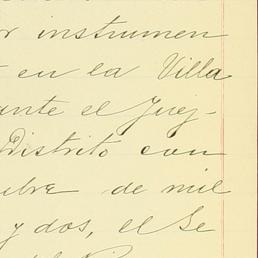 r instrumen
en la Villa
ante el Juez-
Distrito con
ubre de mil
y dos, el Se